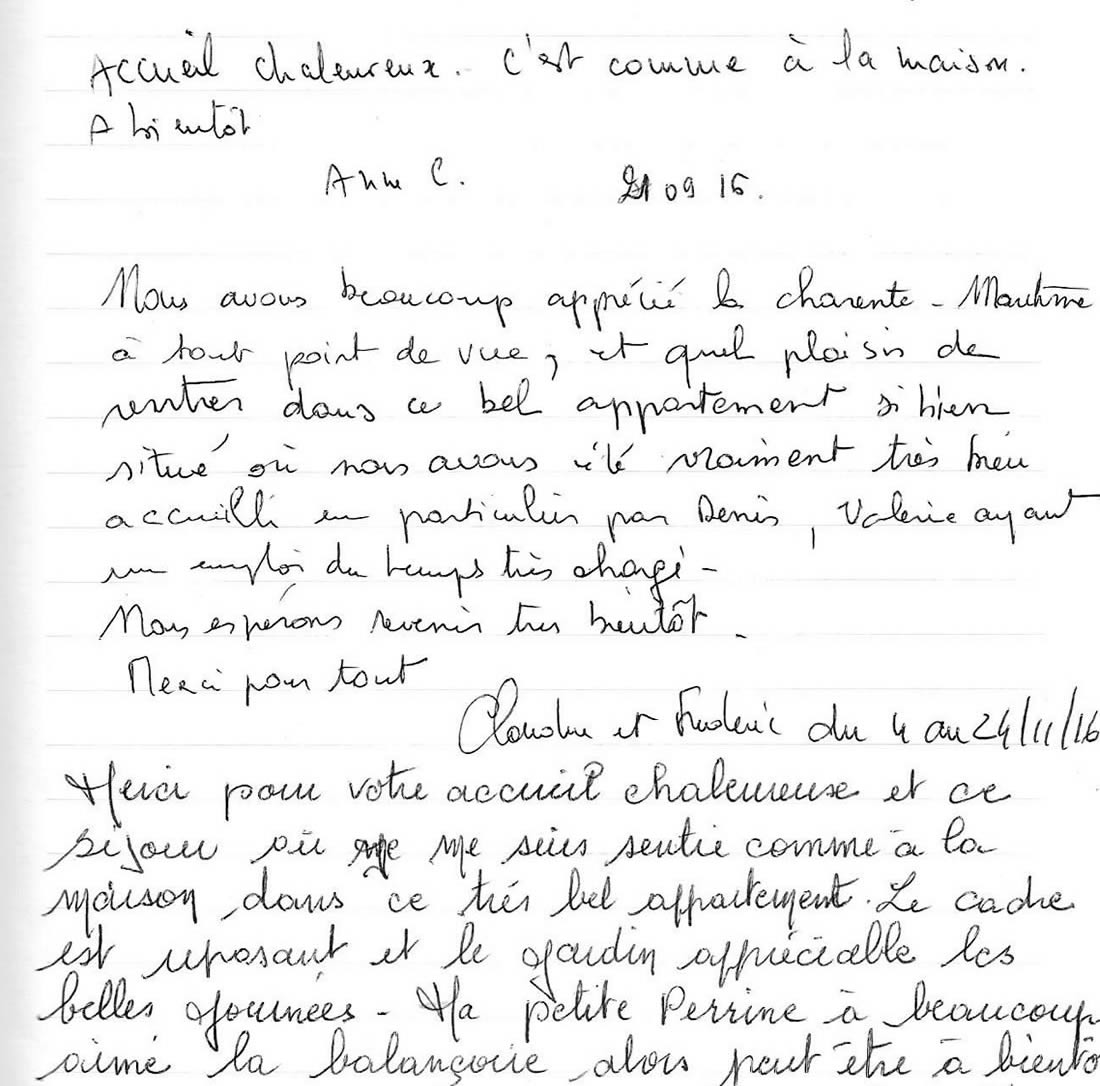 Accueil chaleureux. C'est comme à la maison.
A bientôt
Anne C. 21 09 16.
Nous avons beaucoup apprécié la charente - Maritime
à tout point de vue, et quel plaisir de
rentrer dans ce bel appartement si bien
situé où nous avons été vraiment très bien
accueilli en particulier par Denis, Valérie ayant
un emploi du temps très chargé -
Nous espérons revenir très bientôt.
Merci pour tout
et Frédéric du 4 au 24/11/16
Merci pour votre accueil chaleureuse et ce
séjour où je me suis sentie comme à la
maison dans ce très bel appartement. Le cadre
est reposant et le jardin appréciable les
belles journées - Ma petite Perrine à beaucoup
aimé la balançoire alors peut être à bientô